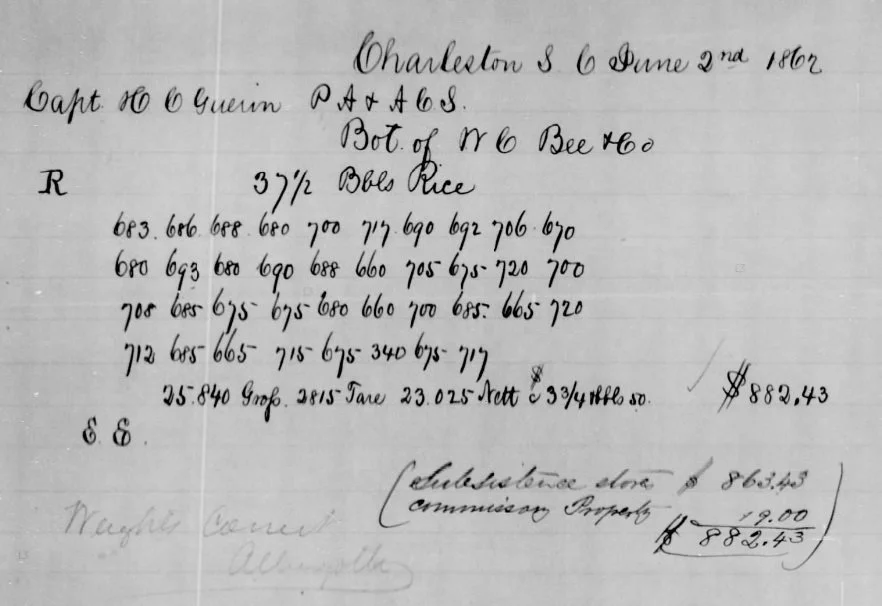 Charleston S C June 2nd 1862
Capt. H C Guerin P A & A C S.
Bot. of W C Bee & Co
R 37 1/2 Bbls Rice
683. 686. 688. 680 700 717. 690 692 706. 670
680 693 680 690 688 660 705 675 720 700
708 685 675 675 680 660 700 685. 665 720
712 685 665 715 675 340 675 717
25.840 Gross. 2815 Tare 23.025 Nett @ $ 3 3/4 Bbls 50. $882.43
E. E.
(Subsistence stores $ 863.43
commissary Property 19.00
$ 882.43)
Weights Correct